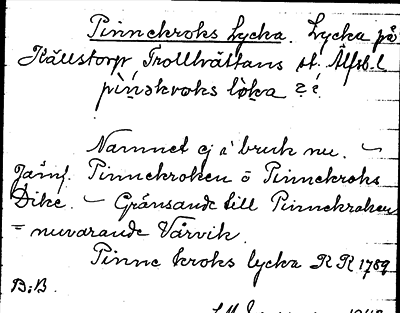 Pinnekroks Lycka. Lycka på
Källstorp Trollhättans st. Älfsb. l
pìǹəkroks lò̤ka 2 é
Namnet ej i bruk nu. –
Jämf. Pinnekroken o Pinnekroks
Dike. – Gränsande till Pinnekroken
= nuvarande Vårvik.
Pinne kroks lycka RR 1789
B:B.